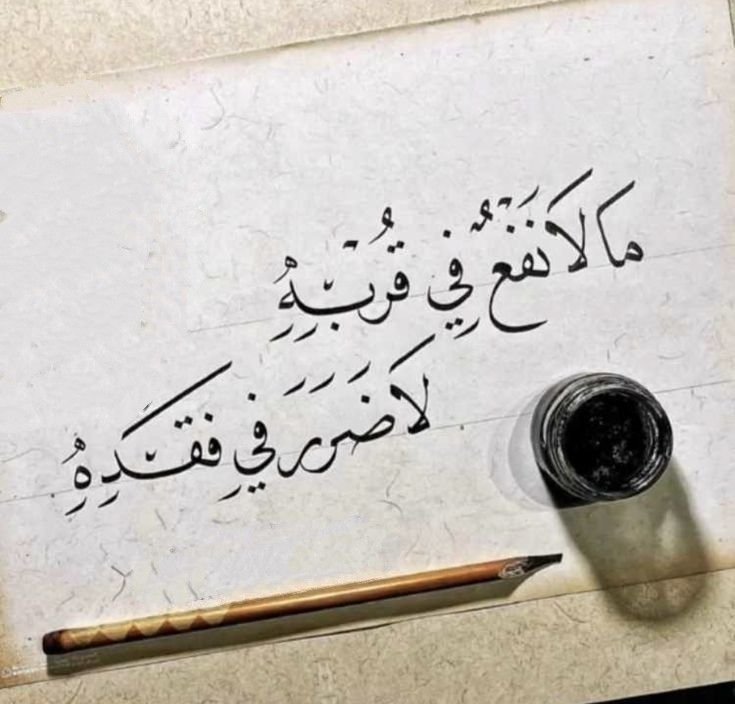 مَا لَا نَفْعٌ فِي قُرْبِهِ
لَا ضَرَرَ فِي فَقْدِهِ